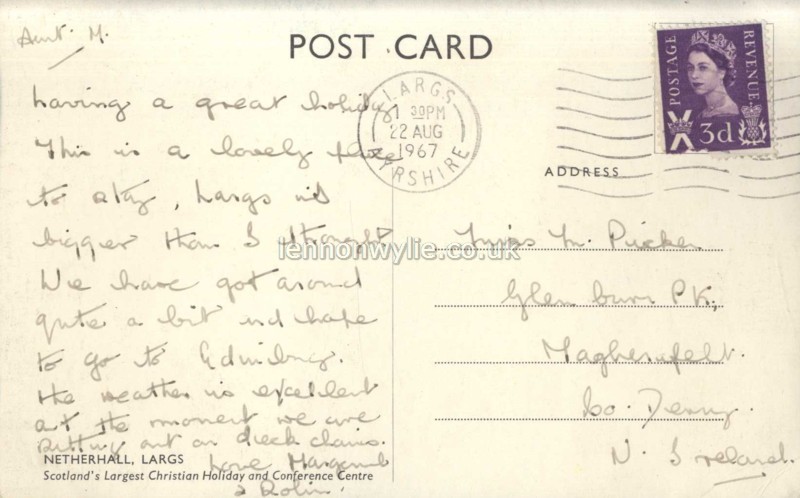 Aunt. M.
POST CARD
having a great holiday
This is a lovely place
to stay, Largs is
bigger than I thought
We have got around
quite a bit and hope
to go to Edinburg.
the weather is excellent
at the moment we are
sitting out on deck chairs.
Love Margaret
& Robin.
NETHERHALL, LARGS
Scotland's Largest Christian Holiday and Conference Centre
LARGS
1 30PM
22 AUG
1967
AYRSHIRE
POSTAGE
REVENUE
3d
ADDRESS
Miss M. Picken
Glenburn PK,
Magherafelt.
Co. Derry.
N. Ireland.
lennonwylie.co.uk